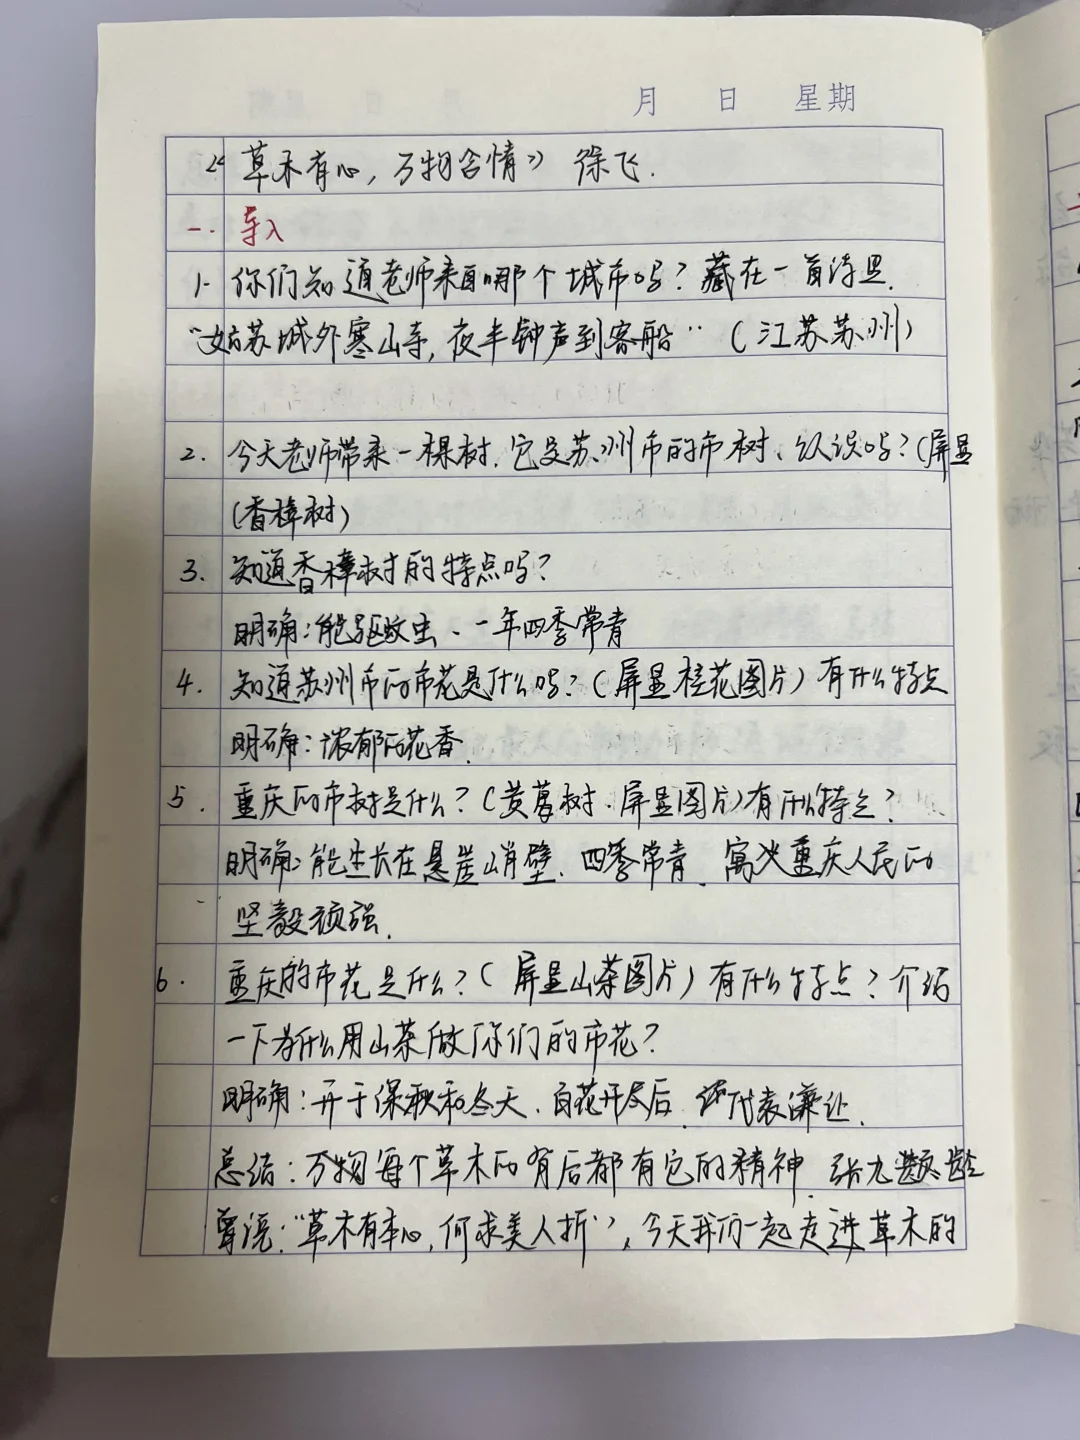 月 日 星期
《草木有心，万物含情》 徐飞.
一. 导入
1. 你们知道老师来自哪个城市吗？藏在一首诗里.
"姑苏城外寒山寺，夜半钟声到客船"（江苏苏州）
2. 今天老师带来一棵树. 它是苏州市的市树、认识吗？（屏显
（香樟树）
3. 知道香樟树的特点吗？
明确：能驱蚊虫、一年四季常青
4. 知道苏州市的市花是什么吗？（屏显桂花图片）有什么特点
明确：浓郁的花香.
5. 重庆的市树是什么？（黄葛树. 屏显图片）有什么特点？
明确：能生长在悬崖峭壁、四季常青、寓意重庆人民的
坚毅顽强.
6. 重庆的市花是什么？（屏显山茶图片）有什么特点？介绍
一下为什么用山茶做你们的市花？
明确：开于深秋和冬天、百花开尽后、还代表谦让.
总结：万物每个草木的背后都有它的精神. 张九龄
曾说："草木有本心，何求美人折"，今天我们一起走进草木的